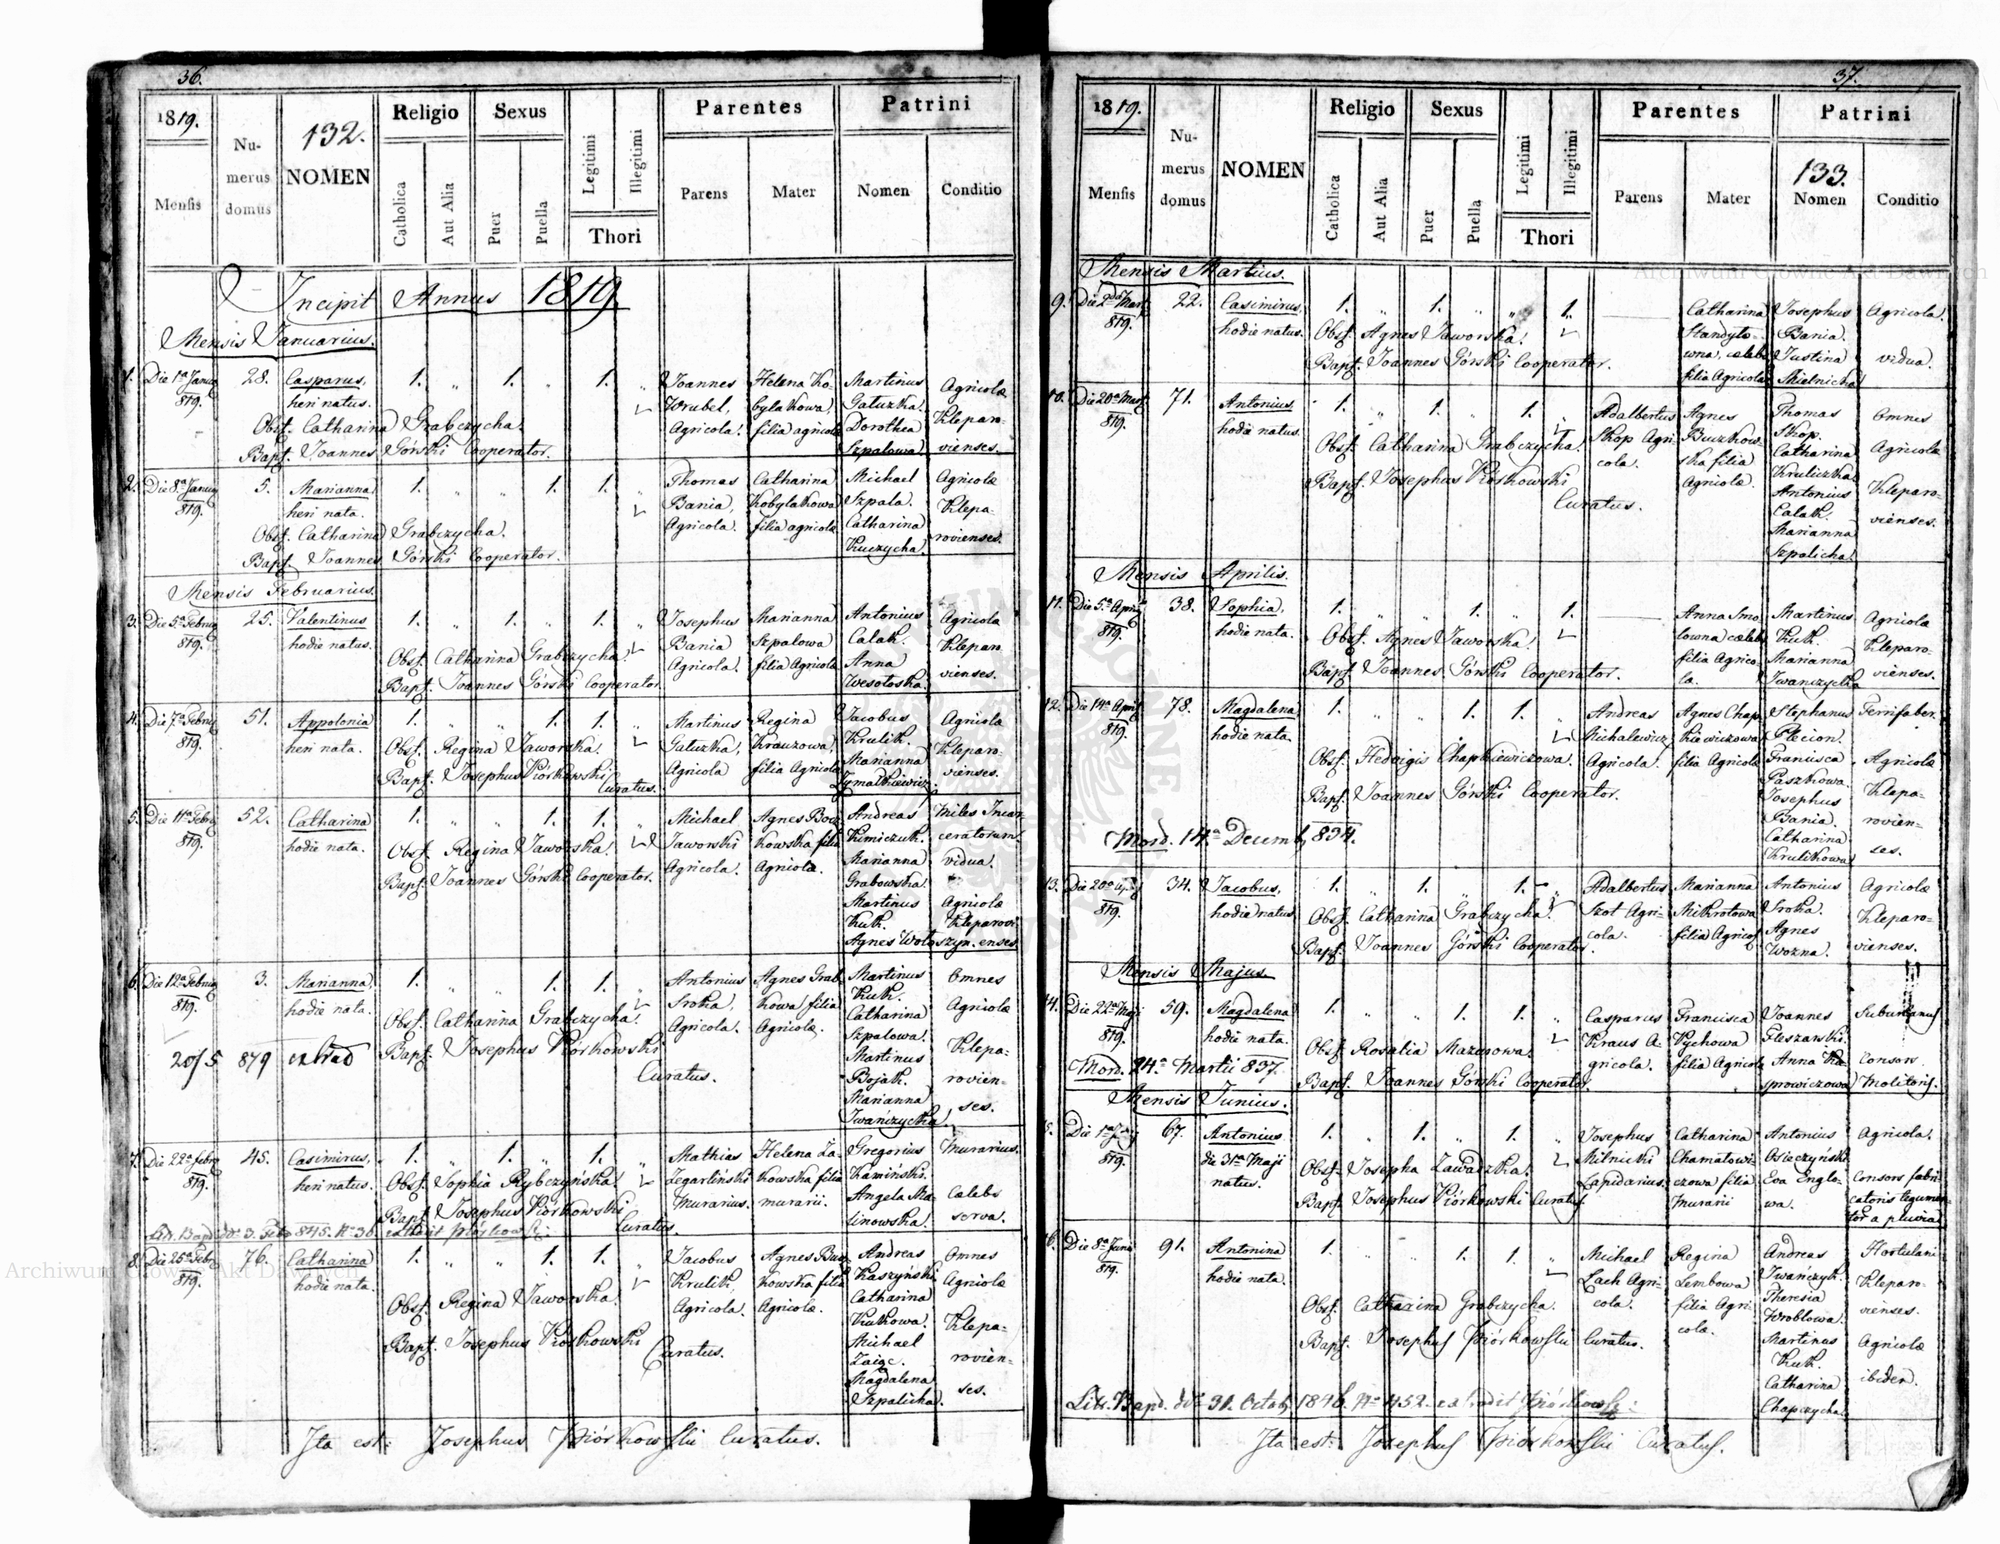 36.
1819.
Mensis
Numerus domus
132.
NOMEN
Religio
Catholica
Aut Alia
Sexus
Puer
Puella
Legitimi
Illegitimi
Thori
Parentes
Parens
Mater
Patrini
Nomen
Conditio
Incipit Annus 1819
Mensis Januarius.
1. Die 1a Janua 819. 28. Casparus, heri natus. 1. „ 1. „ 1. „
Joannes Wrubel, Agricola.
Helena Kobylakowa, filia agricolæ
Martinus Gatuzka. Dorothea Szpalowa.
Agricolæ Kleparovienses.
Obst. Catharina Grabczycha.
Bapt. Joannes Górski Cooperator.
2. Die 8a Janua 819. 5. Marianna heri nata. 1. „ „ 1. 1. „
Thomas Bania, Agricola.
Catharina Kobylakowa filia agricolæ
Michael Szpala. Catharina Kuczycha.
Agricolæ Kleparovienses.
Obst. Catharina Grabczycha.
Bapt. Joannes Górski Cooperator.
Mensis Februarius.
3. Die 5a Februa 819. 25. Valentinus hodie natus. 1. „ 1. „ 1. „
Josephus Bania Agricola.
Marianna Szpalowa filia Agricolæ
Antonius Calak. Anna Wesołoska.
Agricolæ Kleparovienses.
Obst. Catharina Grabczycha.
Bapt. Joannes Górski Cooperator.
4. Die 7a Februa 819. 51. Appolonia heri nata. 1. „ „ 1. 1. „
Martinus Gatuzka, Agricola
Regina Krauzowa, filia Agricolæ
Jacobus Krulik. Marianna Zymalkiewicz.
Agricolæ Kleparovienses.
Obst. Regina Jaworska.
Bapt. Josephus Piórkowski Curatus.
5. Die 11a Febru 819. 52. Catharina hodie nata. 1. „ „ 1. 1.
Michael Jaworski Agricola.
Agnes Buczkowska filia Agricolæ.
Andreas Kimiczuk. Marianna Grabowska. Martinus Kuk. Agnes Wołoszyn.
Miles Incarceratorum. vidua. Agricolæ Kleparovienses
Obst. Regina Jaworska.
Bapt. Joannes Górski Cooperator.
6. Die 12a Februa 819. 3. Marianna hodie nata. 1. „ „ 1. 1. „
Antonius Sroka, Agricola.
Agnes Grabkowa filia Agricolæ,
Martinus Kuk. Catharina Szpalowa. Martinus Bojak. Marianna Iwańczycka.
Omnes Agricolæ Kleparovienses.
Obst. Catharina Grabczycha.
Bapt. Josephus Piórkowski Curatus.
20/5 879
7. Die 22a Febru 819. 45. Casimirus, heri natus. 1. „ 1. „ 1. „
Mathias Zegartiński Murarius.
Helena Zakowska filia murarii.
Gregorius Kaminski. Angela Malinowska.
Murarius. Cælebs serva.
Obst. Sophia Rybczyńska.
Bapt. Josephus Piórkowski Curatus.
8. Die 25a Febru 819. 76. Catharina hodie nata. 1. „ „ 1. 1. „
Jacobus Krulik, Agricola.
Agnes Buczkowska filia Agricolæ.
Andreas Kaszyński. Catharina Kutkowa. Michael Zaiąc. Magdalena Szpalicha.
Omnes Agricolæ Kleparovienses.
Obst. Regina Jaworska.
Bapt. Josephus Piórkowski Curatus.
Ita est: Josephus Piórkowski Curatus.
37.
1819.
Mensis
Numerus domus
NOMEN
Religio
Catholica
Aut Alia
Sexus
Puer
Puella
Legitimi
Illegitimi
Thori
Parentes
Parens
Mater
Patrini
133.
Nomen
Conditio
Mensis Martius.
9. Die 2da Mart. 819. 22. Casimirus, hodie natus. 1. „ 1. „ „ 1.
Catharina Handylowna, cælebs filia Agricolæ
Josephus Bania. Justina Mielnicka
Agricola. vidua.
Obst. Agnes Jaworska.
Bapt. Joannes Górski Cooperator.
10. Die 20a Mart. 819. 71. Antonius, hodie natus. 1. „ 1. „ 1.
Adalbertus Skop Agricola.
Agnes Buczkowska filia Agricolæ.
Thomas Skop. Catharina Kruliczka. Antonius Calak. Marianna Szpalicha.
Omnes Agricolæ Kleparovienses.
Obst. Catharina Grabczycha.
Bapt. Josephus Piórkowski Curatus.
Mensis Aprilis.
11. Die 5a Apr. 819. 38. Sophia, hodie nata. 1. „ „ 1. „ 1.
Anna Smolowna cælebs filia Agricolæ.
Martinus Kuk. Marianna Iwanczycka
Agricolæ Kleparovienses.
Obst. Agnes Jaworska.
Bapt. Joannes Górski Cooperator.
12. Die 14a Apr. 819. 78. Magdalena hodie nata. 1. „ „ 1. 1. „
Andreas Michalewicz Agricola.
Agnes Chapkiewiczowa filia Agricolæ
Stephanus Plecion. Francisca Paszkowa. Josephus Bania. Catharina Krulikowa
Ferrifaber. Agricolæ Kleparovienses.
Obst. Hedvigis Chapkiewiczowa.
Bapt. Joannes Górski Cooperator.
Mord. 14a Decemb. 834.
13. Die 20a Apr. 819. 34. Jacobus, hodie natus. 1. „ 1. „ 1.
Adalbertus Szot Agricola.
Marianna Mikrotowa filia Agricol
Antonius Sroka. Agnes Wozna.
Agricolæ Kleparovienses.
Obst. Catharina Grabczycha.
Bapt. Joannes Górski Cooperator.
Mensis Majus
14. Die 22a Maji 819. 59. Magdalena hodie nata. 1. „ „ 1. 1. „
Casparus Kraus Agricola.
Francisca Vychowa filia Agricolæ
Joannes Fleszarski. Anna Kasprowiczowa
Suburbanus Consors Molitoris.
Obst. Rosalia Mazurowa.
Bapt. Joannes Górski Cooperator.
Mord. 24a Martii 837.
Mensis Junius.
15. Die 1a Junij 819. 67. Antonius die 31a Maji natus. 1. „ 1. „ 1. „
Josephus Milnicki Lapidarius.
Catharina Chamatowiczowa filia Murarii
Antonius Osieczyński. Eva Englowa.
Agricola. Consors fabricatoris tegumentor a pluvia
Obst. Josepha Zawadzka.
Bapt. Josephus Piórkowski Curatus.
16. Die 8a Junii 819. 91. Antonina hodie nata. 1. „ 1. 1.
Michael Lach Agricola.
Regina Lembowa filia Agricolæ.
Andreas Iwańczyk. Theresia Wroblowa. Martinus Kuk. Catharina Chapczycha
Hortulani Kleparovienses. Agricolæ ibidem.
Obst. Catharina Grabczycha.
Bapt. Josephus Piórkowski Curatus.
Litt. Bapt. ddt 31. Octob. 1846. No 452. extradit Piórkowski
Ita est: Josephus Piórkowski Curatus.
Archiwum Główne Akt Dawnych
Archiwum Główne Akt Dawnych